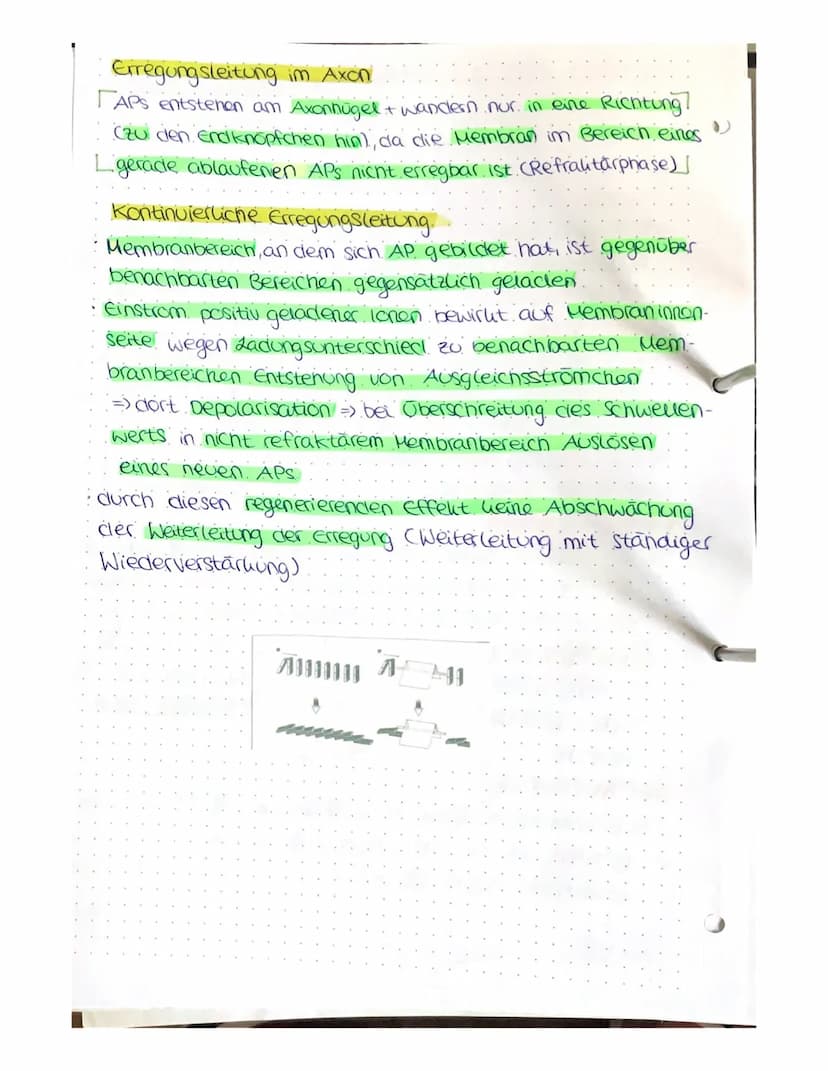 Erregungsleitung im Axon
APs entstehen am Axonhügel + wandern nur in eine Richtung
(zu den Endknöpfchen hin), da die Membran im Bereich eines
gerade ablaufenen APs nicht erregbar ist (Refraktärphase)
Kontinuierliche Erregungsleitung
· Membranbereich, an dem sich AP gebildet hat, ist gegenüber
benachbarten Bereichen gegensätzlich geladen
· Einstrom positiv geladener Ionen bewirkt auf Membraninnen-
seite wegen Ladungsunterschied zu benachbarten Mem-
branbereichen Entstehung von Ausgleichsströmchen
=> dort Depolarisation => bei Überschreitung des Schwellen-
werts in nicht refraktärem Membranbereich Auslösen
eines neuen APs
· durch diesen regenerierenden Effekt keine Abschwächung
der Weiterleitung der Erregung (Weiterleitung mit ständiger
Wiederverstärkung)